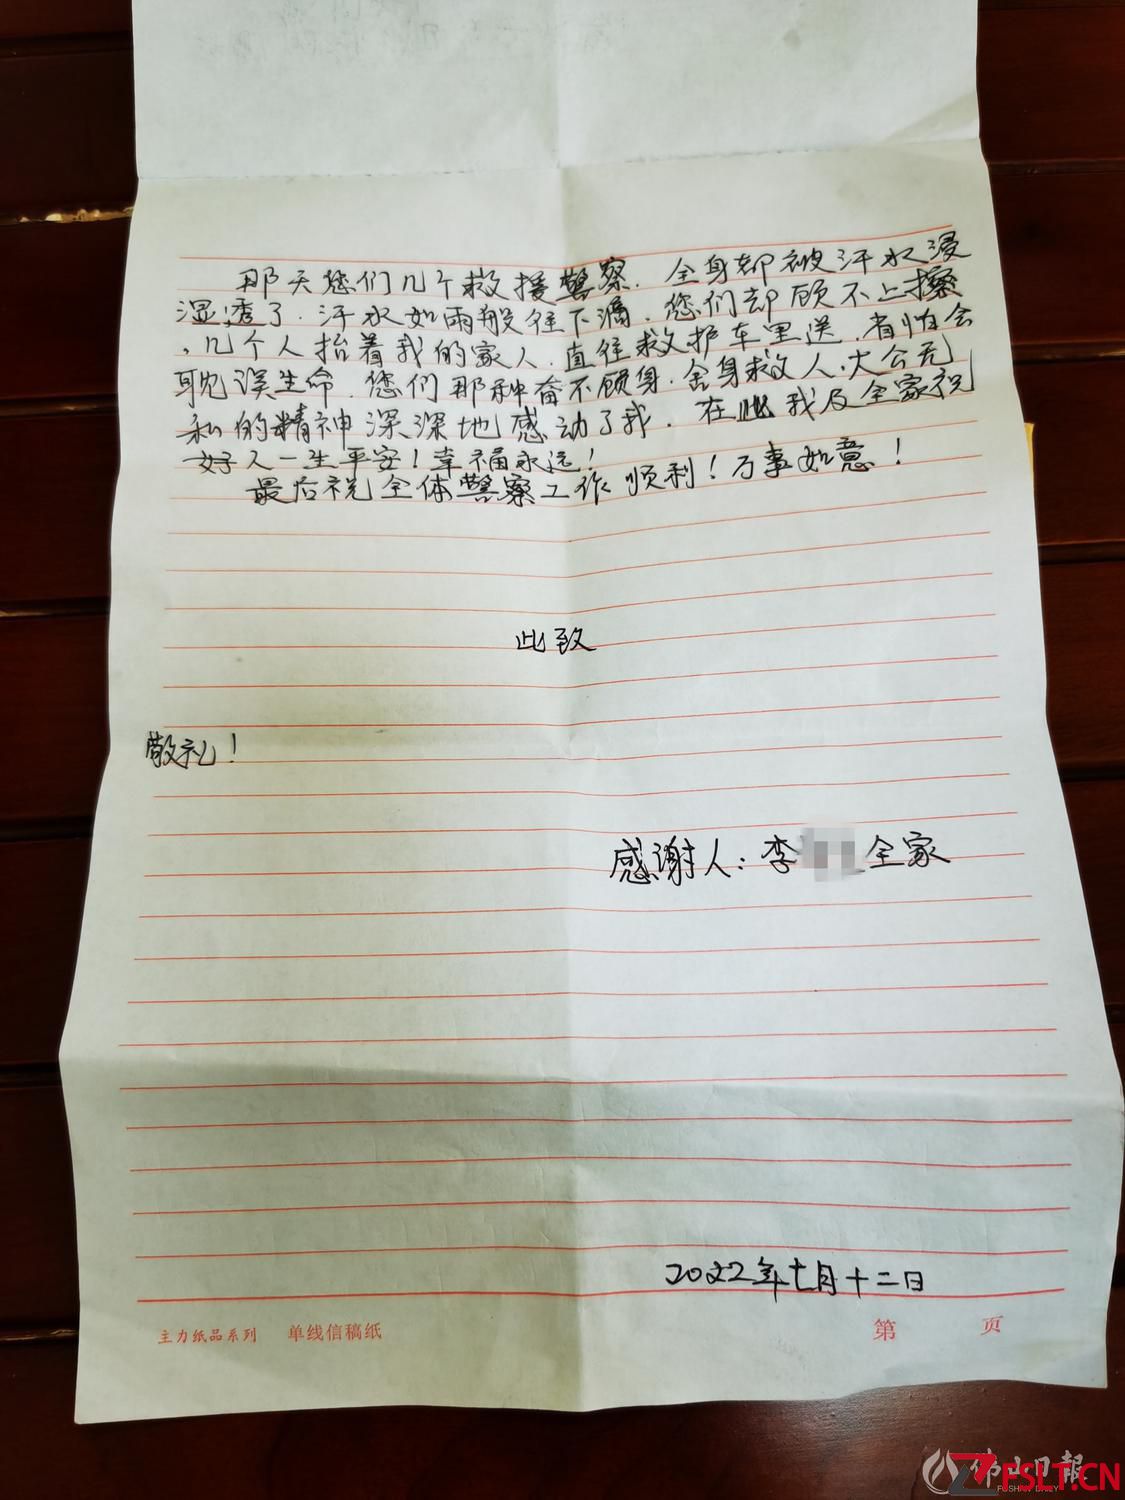 那天您们几个救援警察.全身都被汗水浸
湿透了.汗水如雨般往下滴.您们却顾不上擦
,几个人抬着我的家人.直往救护车里送.省怕会
耽误生命.您们那种奋不顾身.舍身救人.大公无
私的精神深深地感动了我.在此我及全家祝
好人一生平安!幸福永远!
最后祝全体警察工作顺利!万事如意!
此致
敬礼!
感谢人:李 全家
2022年七月十二日
主力纸品系列 单线信稿纸 第 页
佛山日報
FOSHAN DAILY
FSLT.CN